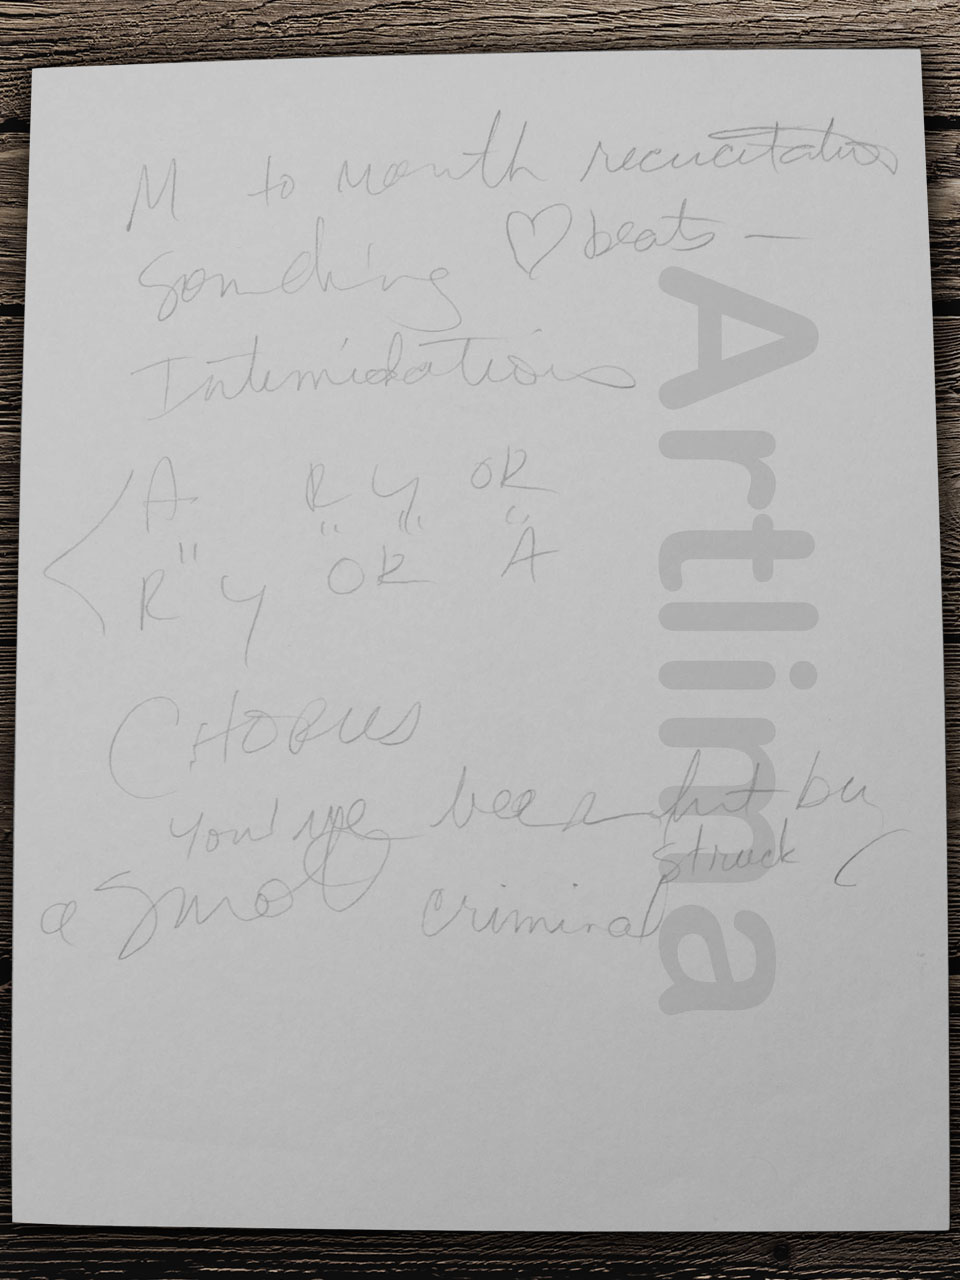 M to mouth recucitation
♡ beats —
Sounding
Intimidations
A R Y OR
" " " "
R Y OR A
CHORUS
You've been hit by
struck
a Smooth criminal
Artlima